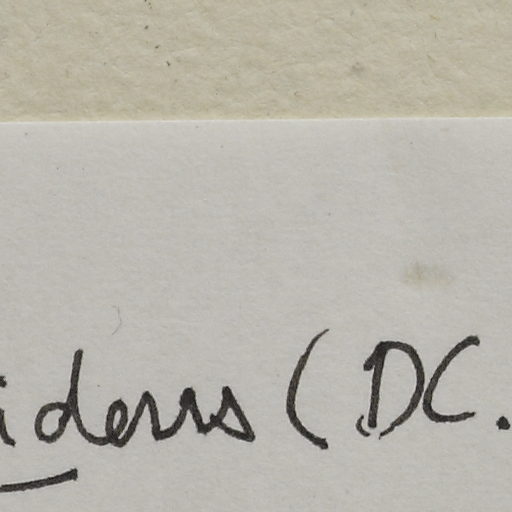 idens (DC.